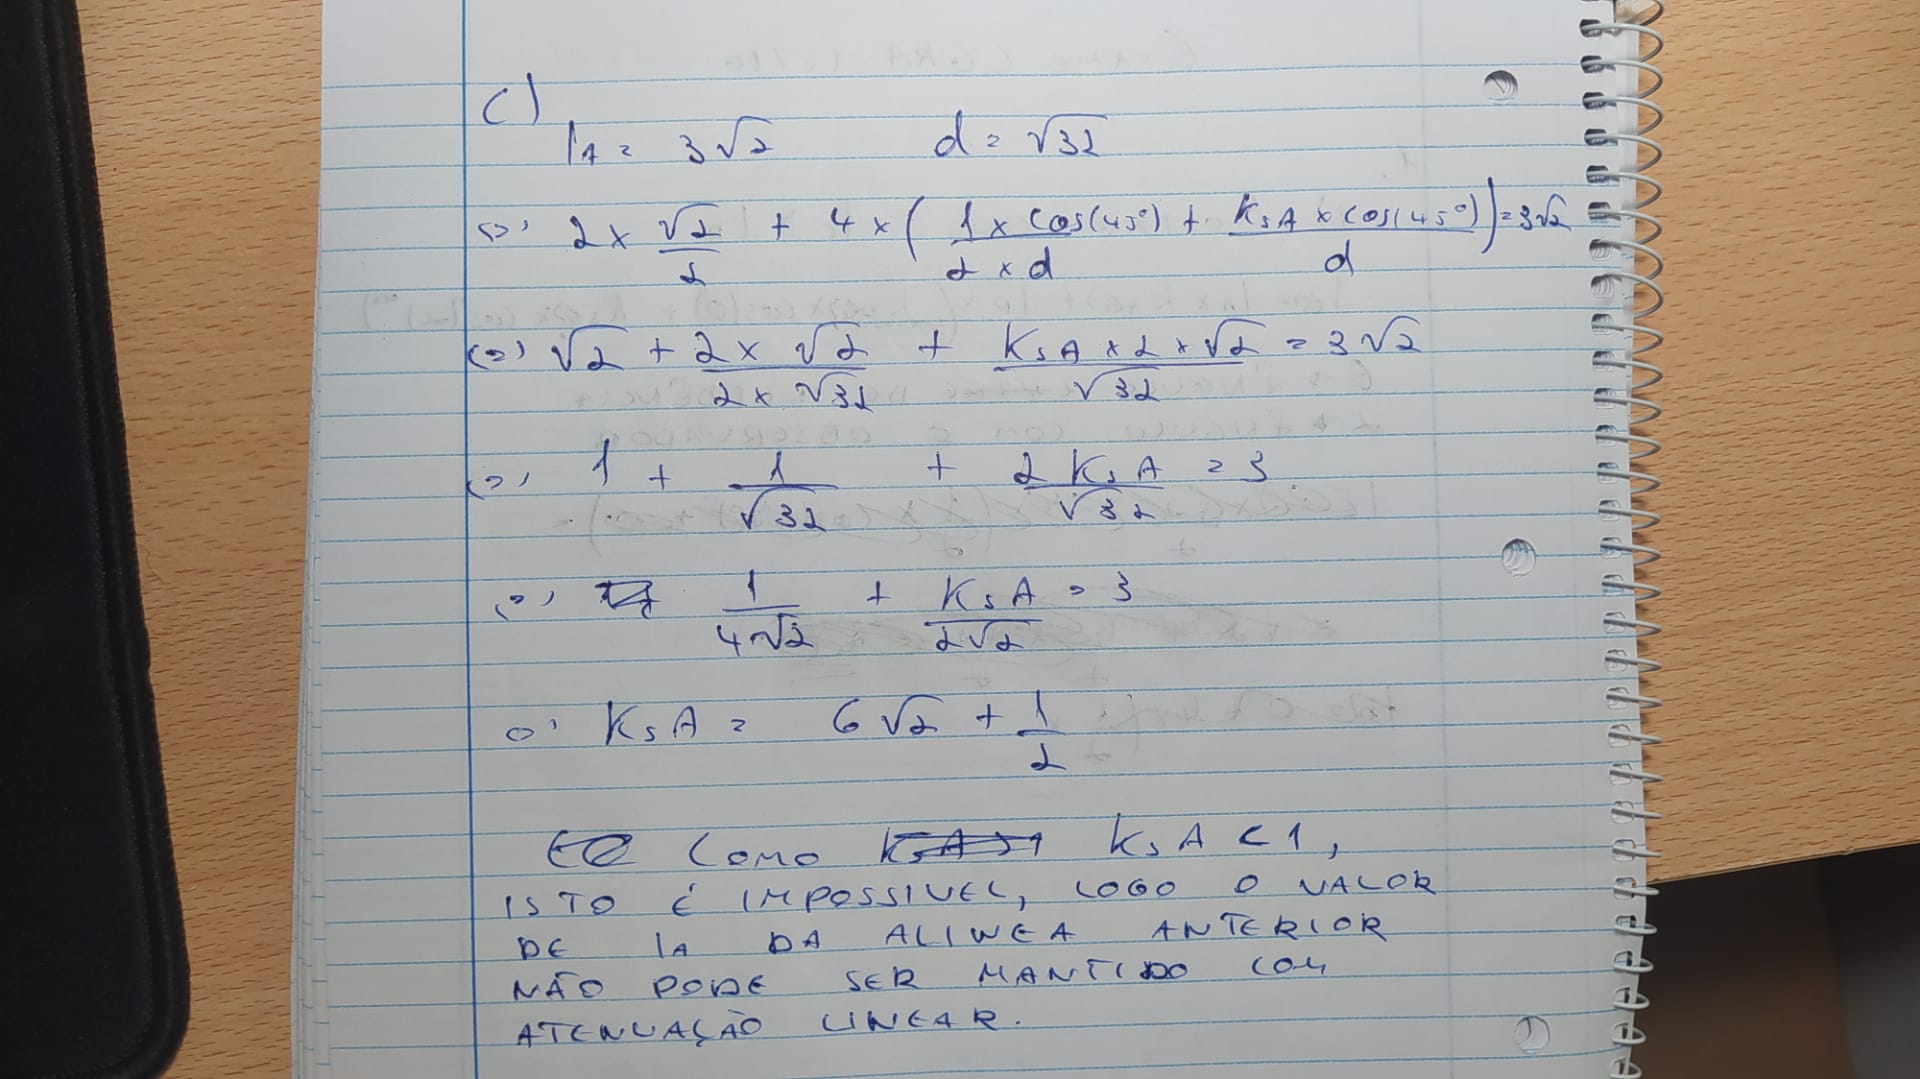 c)
IA = 3√2 d = √32
(=) 2 × √2/2 + 4 × (1 × cos(45°)/(2 × d) + KsA × cos(45°)/d) = 3√2
(=) √2 + 2 × √2/(2 × √32) + KsA × 2 × √2/√32 = 3√2
(=) 1 + 1/√32 + 2KsA/√32 = 3
(=) 1/(4√2) + KsA/(2√2) = 3
(=) KsA = 6√2 + 1/2
COMO KsA < 1,
ISTO É IMPOSSIVEL, LOGO O VALOR
DE IA DA ALINEA ANTERIOR
NÃO PODE SER MANTIDO COM
ATENUAÇÃO LINEAR.